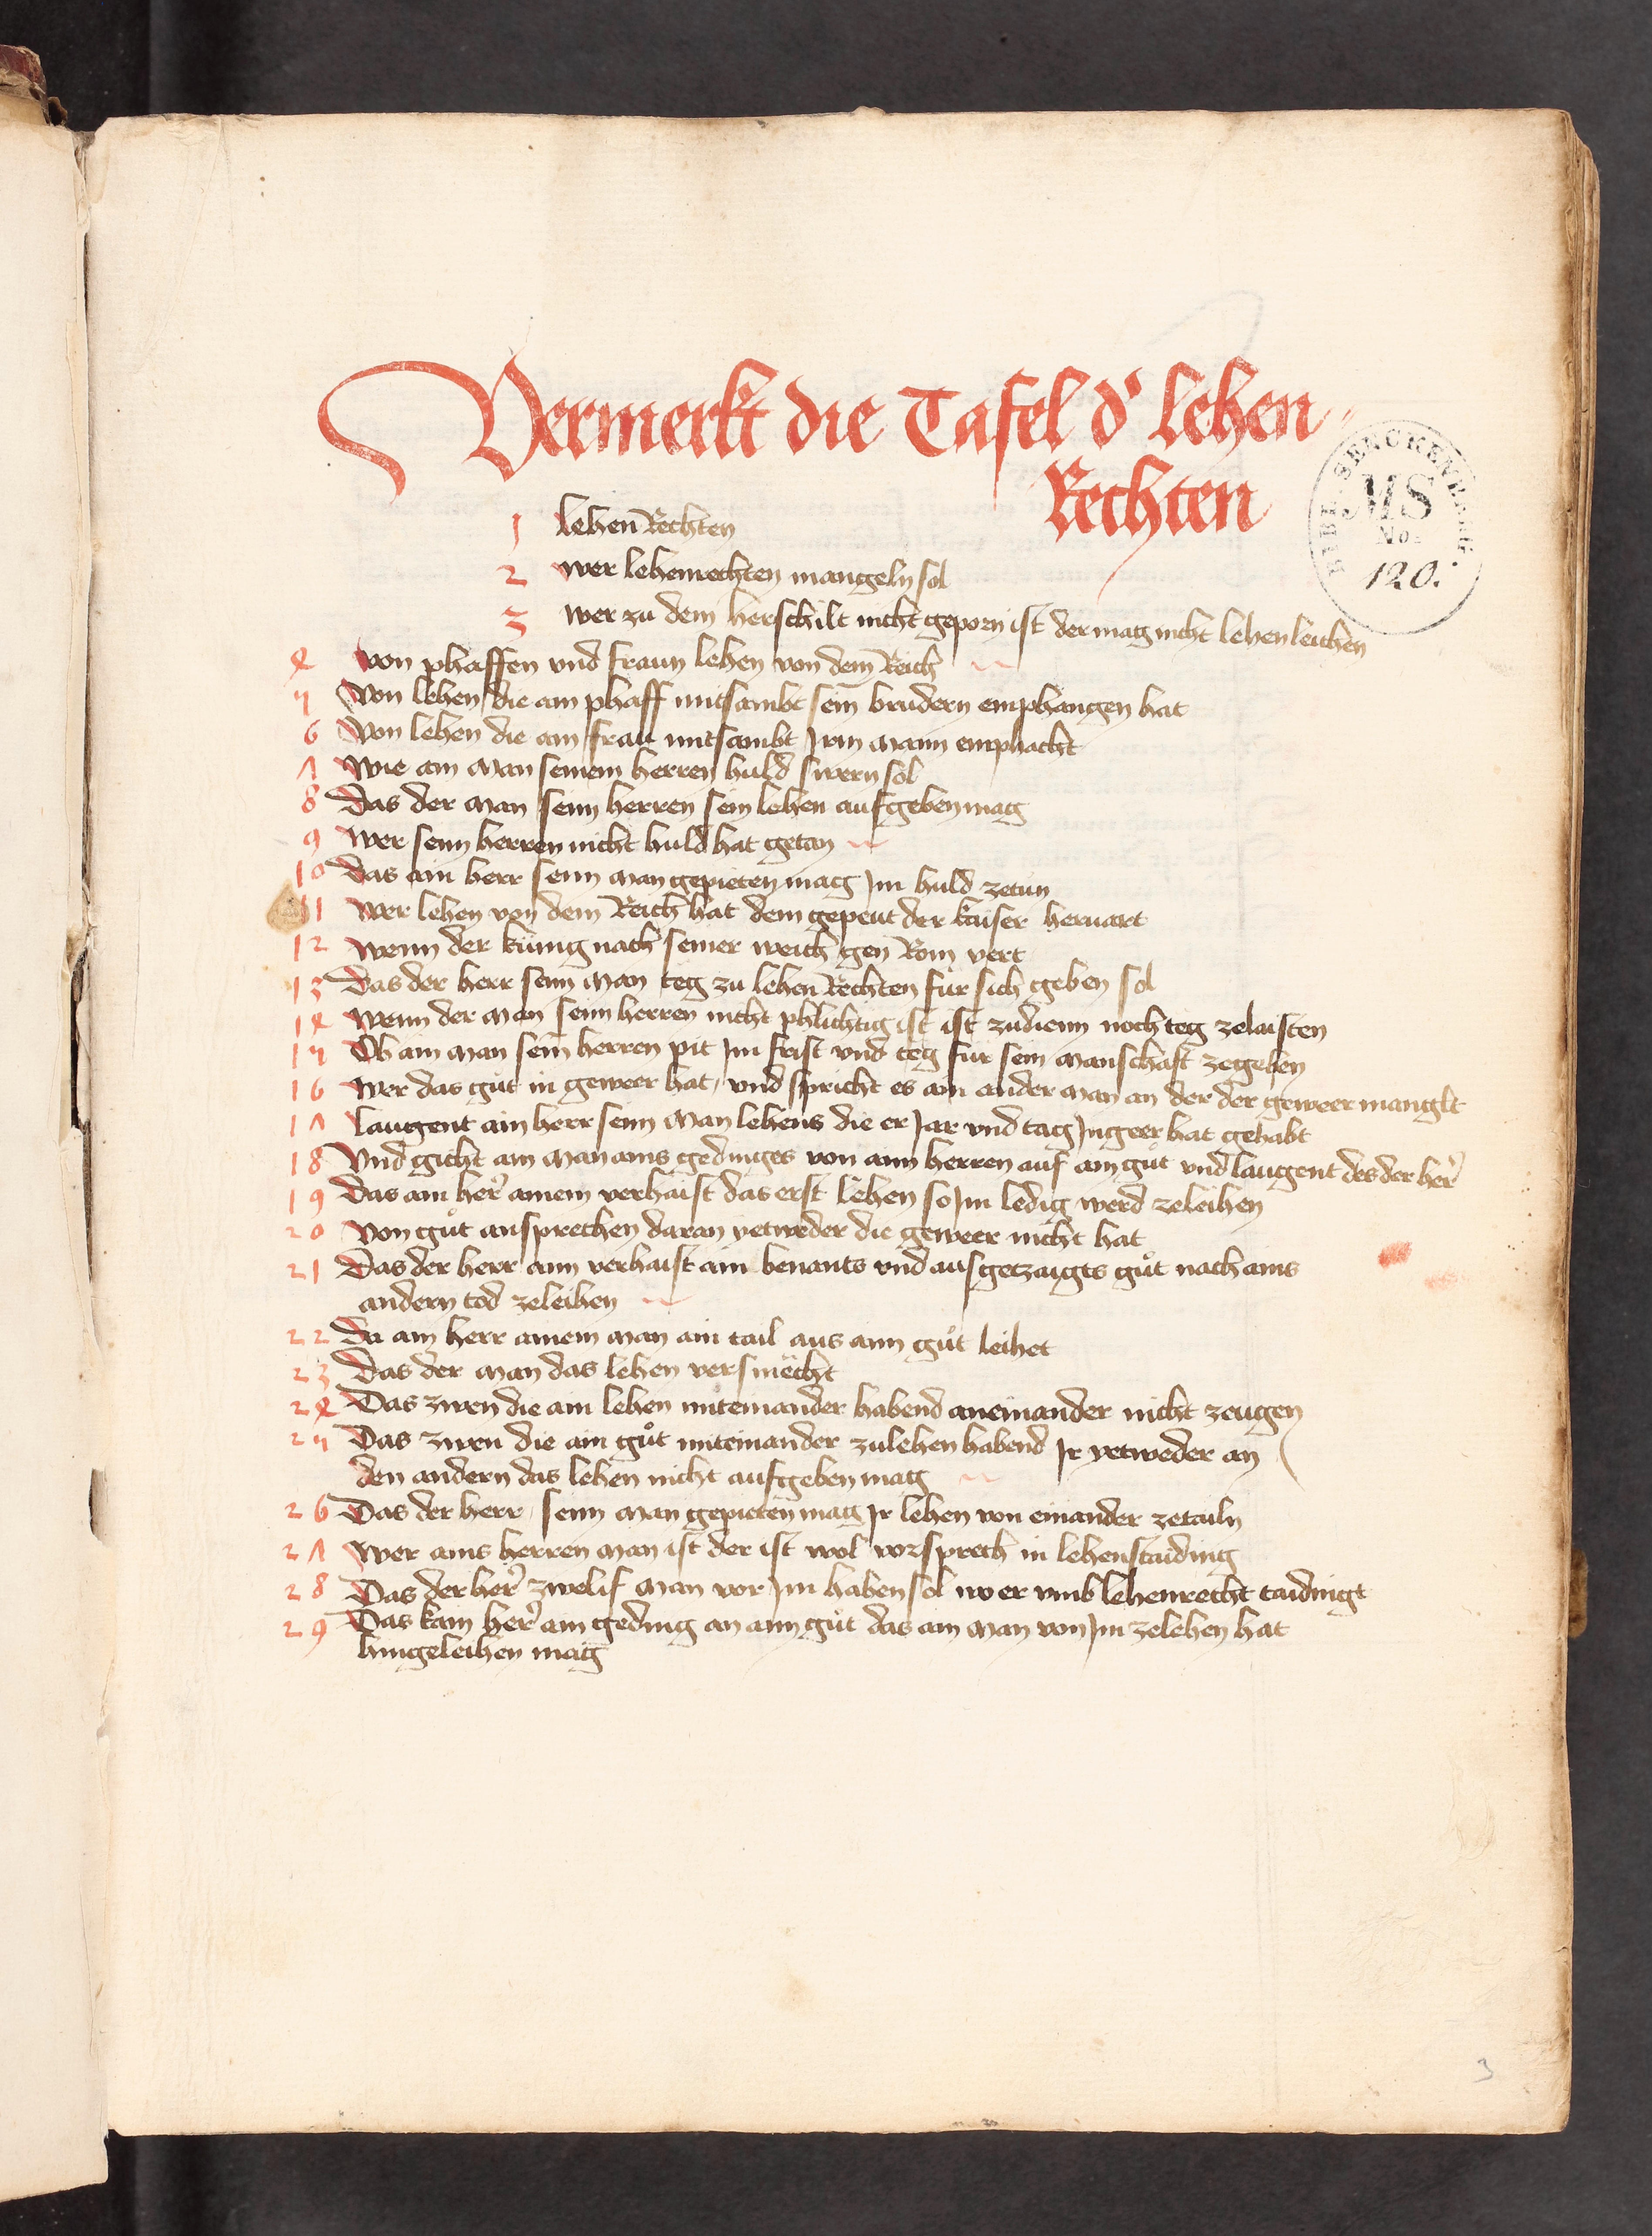 Vermerkt die Tafel d' lehen
Rechten
BIBL. SENCKENBERG.
MS
No.
120.
1 lehen Rechten
2 wer lehenrechten mangeln sol
3 wer zu dem herschilt nicht geporn ist der mag nicht lehen leichen
4 von phaffen vnd fraun lehen von dem Reich
5 Von lehen die ain phaff mitsambt sein brudern emphangen hat
6 Von lehen die ain frau mitsambt Irm mann emphacht
7 Wie ain man seinem herren huld swern sol
8 Das der man seim herren sein lehen aufgeben mag
9 Wer seim herren nicht huld hat getan
10 Das ain herr seim man gepieten mag Im huld zetun
11 wer lehen von dem Reich hat dem gepeut der kaiser heruart
12 wenn der künig nach seiner weich gen Rom vert
13 Das der herr seim man teg zu lehen Rechten für sich geben sol
14 Wenn der man seim herren nicht phlichtig ist ist zudienn noch teg zelaisten
15 Ob ain man sein herren pit Im frist vnd teg für sein manschaft zegeben
16 Wer das gůt in geweer hat, vnd spricht es ain ander man an der der geweer manglt
17 laugent ain herr seim man lehens die er Jar vnd tag In geer hat gehabt
18 Vnd gicht ain man ains gedinges von aim herren auf aim gůt vnd laugent des der her'
19 Das ain her' ainem verhaist das erst lehen so Im ledig werd zeleihen
20 Von gůt ansprechen daran yetweder die geweer nicht hat
21 Das der herr aim verhaist ain benants vnd ausgetzaigts gůt nach ains
andern tod zeleihen
22 Da ain herr ainem man ain tail aus aim gůt leihet
23 Das der man das lehen versmecht
24 Das zwen die ain lehen miteinander habend aneinander nicht zeugen
25 Das zwen die ain gůt miteinander zulehen habend Ir yetweder an
den andern das lehen nicht aufgeben mag
26 Das der herr seim man gepieten mag Ir lehen von einander zetailn
27 Wer ains herren man ist der ist wol vorsprech in lehenstaiding
28 Das der her' zwelif man vor Im haben sol wo er vmb lehenrecht taidingt
29 Das kain her' ain geding an aim gůt das ain man von Im zelehen hat
hingeleihen mag
3